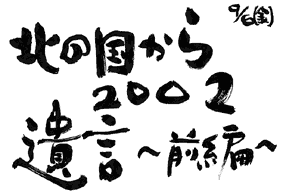 9/6(金)
北の国から
2002
遺言
～前編～